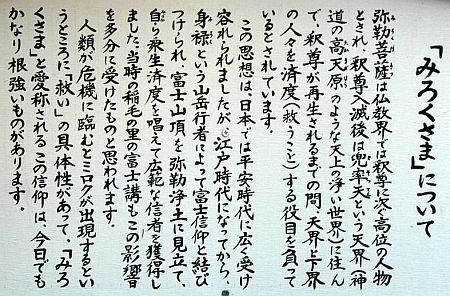 「みろくさま」について
弥勒菩薩は仏教界では釈尊に次ぐ高位の人物
とされ、釈尊入滅後は兜率天という天界（神
道の高天原のような天上の浄い世界）に住ん
で、釈尊が再生されるまでの間、天界と下界
の人々を済度（救うこと）する役目を負って
いるとされています。
この思想は、日本では平安時代に広く受け
容れられましたが、江戸時代になってから、
身禄という山岳行者によって富士信仰と結び
つけられ、富士山頂を弥勒浄土に見立て、
自ら衆生済度を唱えて広範な信者を獲得し
ました。当時の稲毛の里の富士講もこの影響
を多分に受けたものと思われます。
人類が危機に臨むとミロクが出現するとい
うところに「救い」の具体性があって、「みろ
くさま」と愛称されるこの信仰は、今日でも
かなり根強いものがあります。